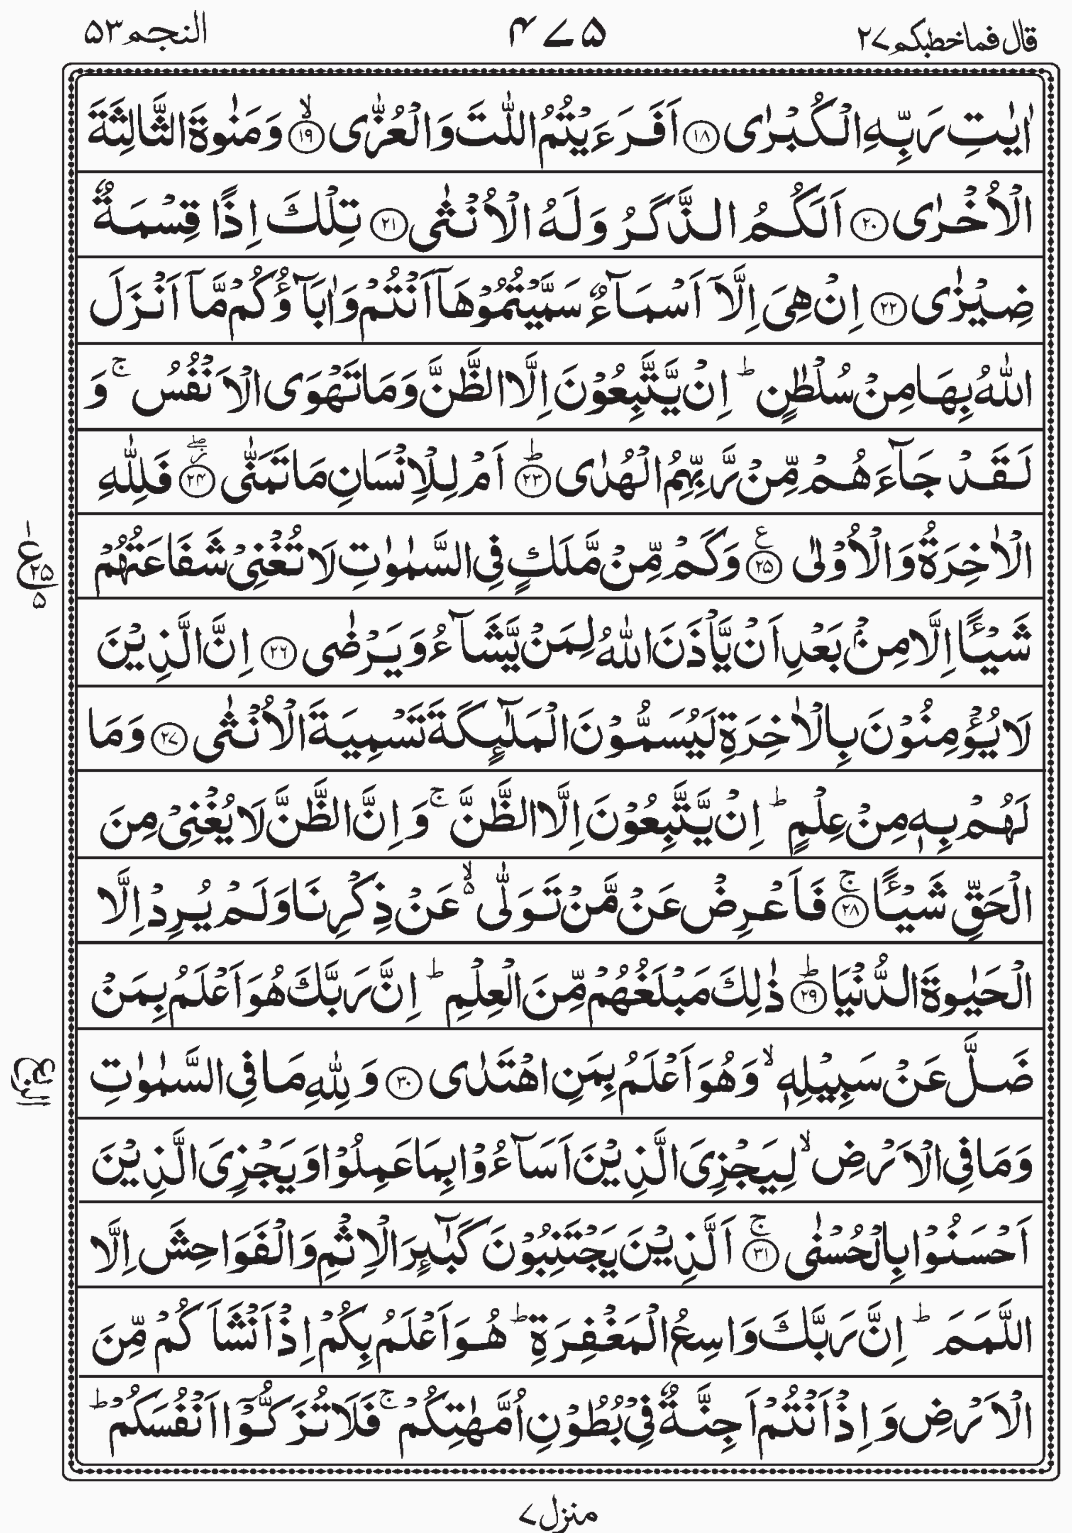 قال فما خطبكم ٢٧
٤٧٥
النجم ٥٣
اٰيٰتِ رَبِّهِ الْكُبْرٰى ﴿١٨﴾ اَفَرَءَيْتُمُ اللّٰتَ وَالْعُزّٰى ۙ﴿١٩﴾ وَمَنٰوةَ الثَّالِثَةَ
الْاُخْرٰى ﴿٢٠﴾ اَلَكُمُ الذَّكَرُ وَلَهُ الْاُنْثٰى ﴿٢١﴾ تِلْكَ اِذًا قِسْمَةٌ
ضِيْزٰى ﴿٢٢﴾ اِنْ هِىَ اِلَّآ اَسْمَآءٌ سَمَّيْتُمُوْهَآ اَنْتُمْ وَاٰبَآؤُكُمْ مَّآ اَنْزَلَ
اللّٰهُ بِهَا مِنْ سُلْطٰنٍ ؕ اِنْ يَّتَّبِعُوْنَ اِلَّا الظَّنَّ وَمَا تَهْوَى الْاَنْفُسُ ۚ وَ
لَقَدْ جَآءَهُمْ مِّنْ رَّبِّهِمُ الْهُدٰى ؕ﴿٢٣﴾ اَمْ لِلْاِنْسَانِ مَا تَمَنّٰى ۖز﴿٢٤﴾ فَلِلّٰهِ
الْاٰخِرَةُ وَالْاُوْلٰى ﴿٢٥﴾ع وَكَمْ مِّنْ مَّلَكٍ فِى السَّمٰوٰتِ لَا تُغْنِىْ شَفَاعَتُهُمْ
١ ع ٢٥ ٥
شَيْــًٔا اِلَّا مِنْۢ بَعْدِ اَنْ يَّاْذَنَ اللّٰهُ لِمَنْ يَّشَآءُ وَيَرْضٰى ﴿٢٦﴾ اِنَّ الَّذِيْنَ
لَا يُؤْمِنُوْنَ بِالْاٰخِرَةِ لَيُسَمُّوْنَ الْمَلٰٓئِكَةَ تَسْمِيَةَ الْاُنْثٰى ﴿٢٧﴾ وَمَا
لَهُمْ بِهٖ مِنْ عِلْمٍ ؕ اِنْ يَّتَّبِعُوْنَ اِلَّا الظَّنَّ ۚ وَاِنَّ الظَّنَّ لَا يُغْنِىْ مِنَ
الْحَقِّ شَيْــًٔا ۚ﴿٢٨﴾ فَاَعْرِضْ عَنْ مَّنْ تَوَلّٰى ۙ۬ عَنْ ذِكْرِنَا وَلَمْ يُرِدْ اِلَّا
الْحَيٰوةَ الدُّنْيَا ؕ﴿٢٩﴾ ذٰلِكَ مَبْلَغُهُمْ مِّنَ الْعِلْمِ ؕ اِنَّ رَبَّكَ هُوَ اَعْلَمُ بِمَنْ
ضَلَّ عَنْ سَبِيْلِهٖ ۙ وَهُوَ اَعْلَمُ بِمَنِ اهْتَدٰى ﴿٣٠﴾ وَلِلّٰهِ مَا فِى السَّمٰوٰتِ
الربع
وَمَا فِى الْاَرْضِ ۙ لِيَجْزِىَ الَّذِيْنَ اَسَآءُوْا بِمَا عَمِلُوْا وَيَجْزِىَ الَّذِيْنَ
اَحْسَنُوْا بِالْحُسْنٰى ۚ﴿٣١﴾ اَلَّذِيْنَ يَجْتَنِبُوْنَ كَبٰٓئِرَ الْاِثْمِ وَالْفَوَاحِشَ اِلَّا
اللَّمَمَ ؕ اِنَّ رَبَّكَ وَاسِعُ الْمَغْفِرَةِ ؕ هُوَ اَعْلَمُ بِكُمْ اِذْ اَنْشَاَكُمْ مِّنَ
الْاَرْضِ وَاِذْ اَنْتُمْ اَجِنَّةٌ فِىْ بُطُوْنِ اُمَّهٰتِكُمْ ۚ فَلَا تُزَكُّوْٓا اَنْفُسَكُمْ ؕ
منزل ٧